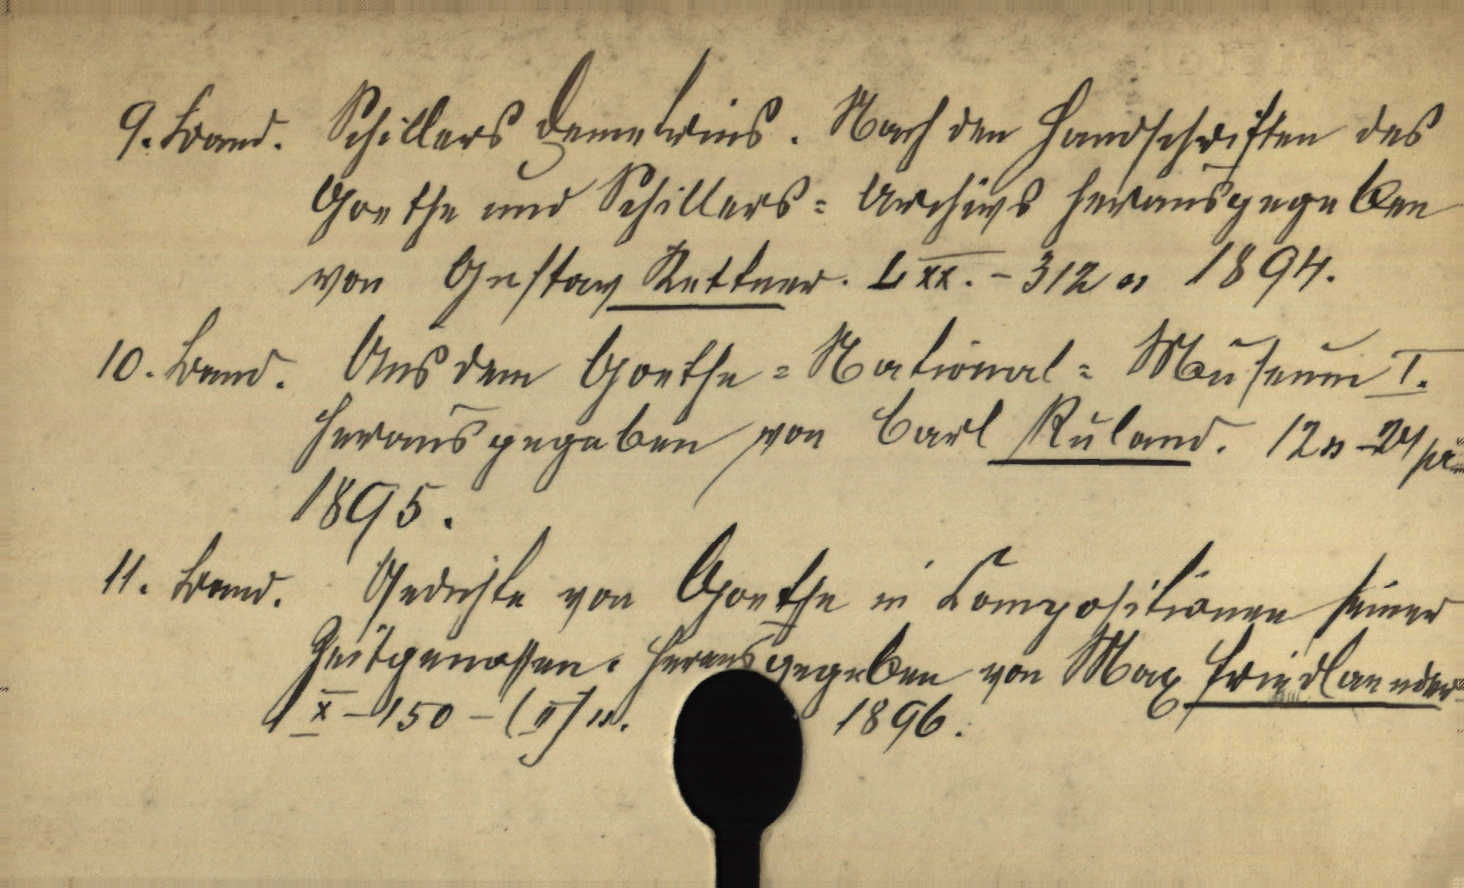 9. Band. Schillers Demetrius. Nach den Handschriften des
Goethe und Schillers = Archivs herausgegeben
von Gustav Kettner. LXX. - 312 1894.
10. Band. Aus dem Goethe = National = Museum I.
herausgegeben von Carl Ruland. 12 - 24
1895.
11. Band. Gedichte von Goethe in Compositionen seiner
Zeitgenossen. Herausgegeben von Max Friedlaender
X - 150 - (II) 1896.